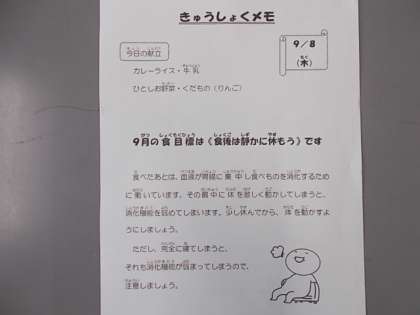 きゅうしょくメモ
9/8
(木)
今日の献立
カレーライス・牛乳
ひとしお野菜・くだもの(りんご)
9月の食目標は(食後は静かに休もう)です
食べたあとは、血液が胃腸に集中し食べものを消化するため
に働いています。その最中に体を激しく動かしてしまうと、
消化機能を弱めてしまいます。少し休んでから、体を動かすよ
うにしましょう。
ただし、完全に寝てしまうと、
それも消化機能が弱まってしまうので、
注意しましょう。